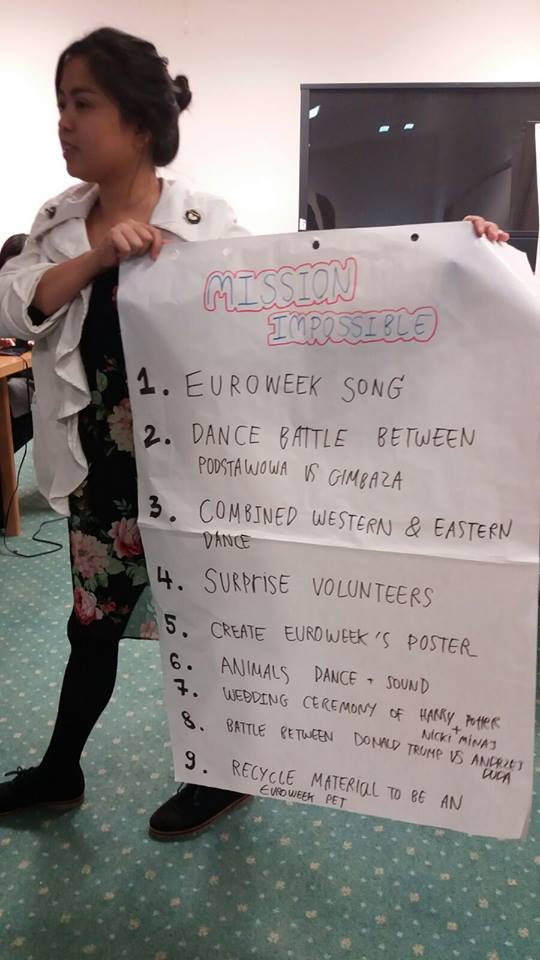 MISSION
IMPOSSIBLE
1. EUROWEEK SONG
2. DANCE BATTLE BETWEEN
PODSTAWOWA VS GIMBAZA
3. COMBINED WESTERN & EASTERN
DANCE
4. SURPRISE VOLUNTEERS
5. CREATE EUROWEEK'S POSTER
6. ANIMALS DANCE + SOUND
7. WEDDING CEREMONY OF HARRY POTTER
+ NICKI MINAJ
8. BATTLE BETWEEN DONALD TRUMP VS ANDRZEJ
DUDA
9. RECYCLE MATERIAL TO BE AN
EUROWEEK PET